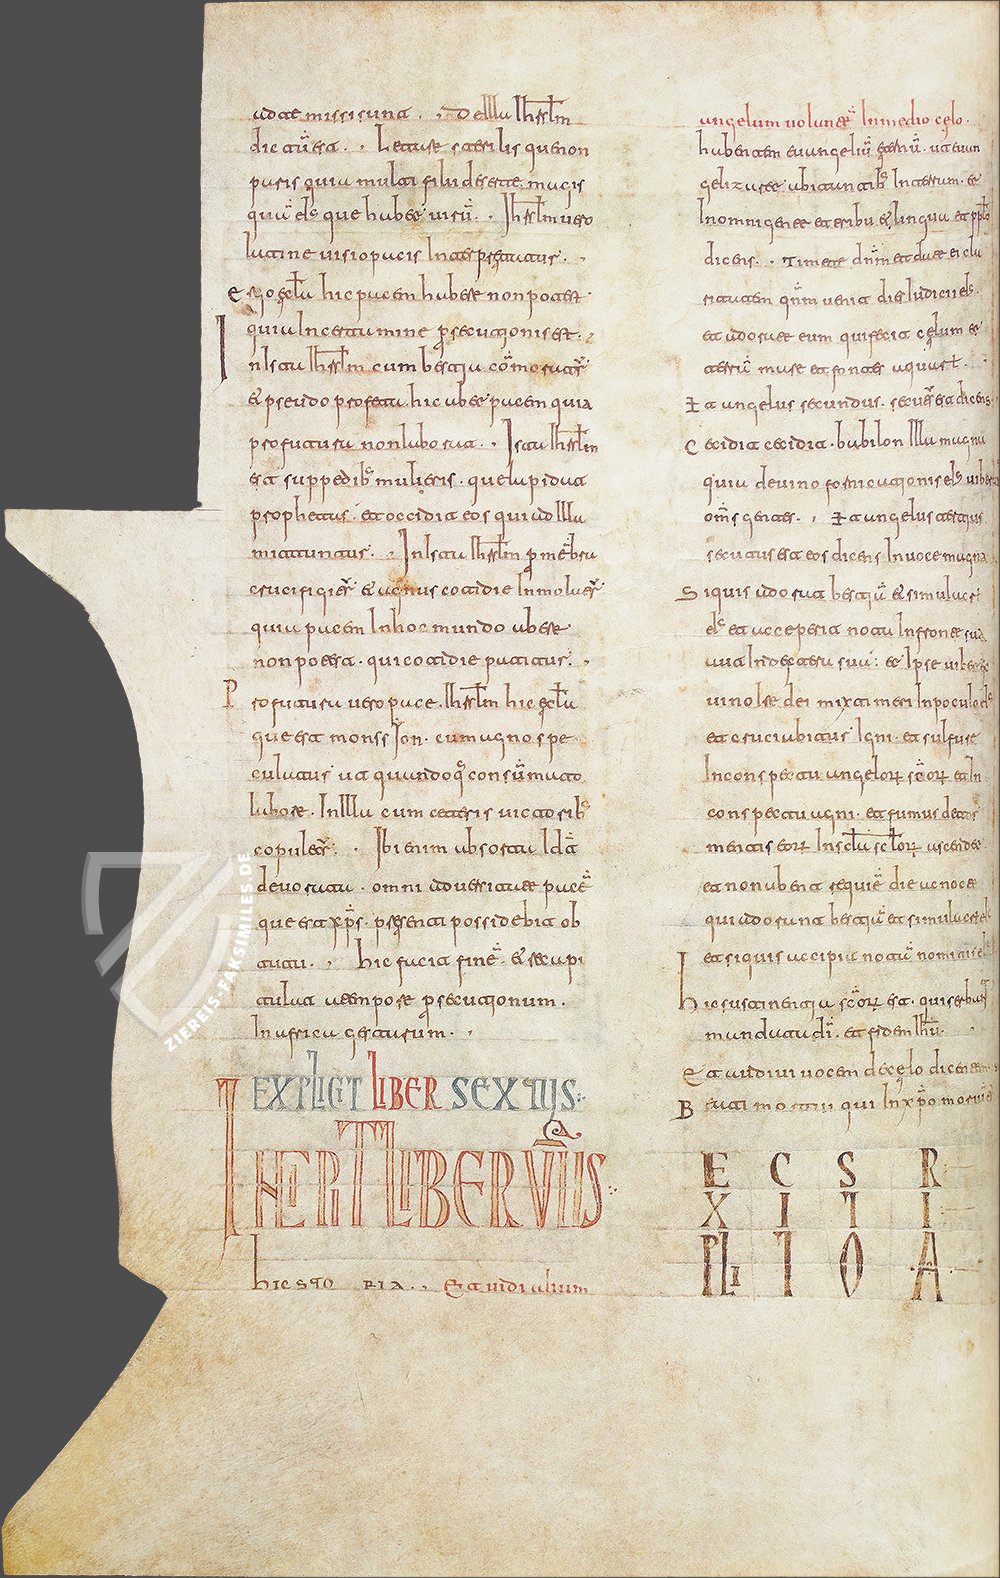 ad te missi sunt. De illa ihrslm
dictū est. Letare sterilis que non
paris quia multi filii deserte magis
quā eis que habet uirū. Ihrslm uero
latine uisio pacis Interpretatur.
ergo eclsia hic pacem habere non potest
quia In certamine persecutionis est.
In ista ihrslm cum bestia cōmoratur
et pseudo profeta hic habet pacem quia
profutura non laborat. Ista ihrslm
est suppedibs mulieris. que lapidat
prophetas. et occidit eos qui ad illa
mittuntur. In ista ihrslm per mēbra
crucifigitur et agnus cotidie Inmolatur
quia pacem In hoc mundo habere
non potest. qui cotidie patitur.
Profutura uero pace. ihrslm hic eclsia
que est mons sion. cum agno spe
culatur ut quandoq consūmato
labore. In illa cum ceteris uictoribs
copuletur. Ibi enim absorta
deuorata. omni aduersitate pacē
que est xps. presenti possidebit ob
tutu. hic facit finē. et recapi
tulat a tempore persecutionum.
In africa gestarum.
EXPLICIT LIBER SEXTUS
INCIPIT LIBER VIIUS
hic storia. Et uidi alium
angelum uolantē In medio celo.
habentem euangeliū eternū. ut euan
gelizaret habitantibs In terram. et
In omni gente et tribu et lingua et pplo
dicens. Timete dnm et date ei cla
ritatem qnm uenit dies Iudicii eis.
et adorate eum qui fecit celum et
terrā mare et fontes aquarum.
Et angelus secundus. secutus est dicens.
Cecidit cecidit. babilon illa magna
quia de uino fornicationis eis
oms gentes. Et angelus tertius
secutus est eos dicens In uoce magna
Si quis adorat bestiā et simulacrum
eis et acceperit nota In fronte sua
aut In dextera sua. et Ipse
uino Ire dei mixti meri In poculo
et cruciabitur Igni. et sulfure
In conspectu angelor scor et In
conspectu agni. et fumus
mentis eor In scla sclor ascendet
et non habent requiē die ac nocte
qui adorant bestiā et simulacrum eis
et si quis accipit notā nominis eis
hic sustinentia scor est. qui seruant
mandata di. et fidem ihu.
Et audiui uocem de celo dicentem.
Beati mortui qui In xpo
E C S R
X I T I
PLI T O A
ZIEREIS-FAKSIMILES.DE